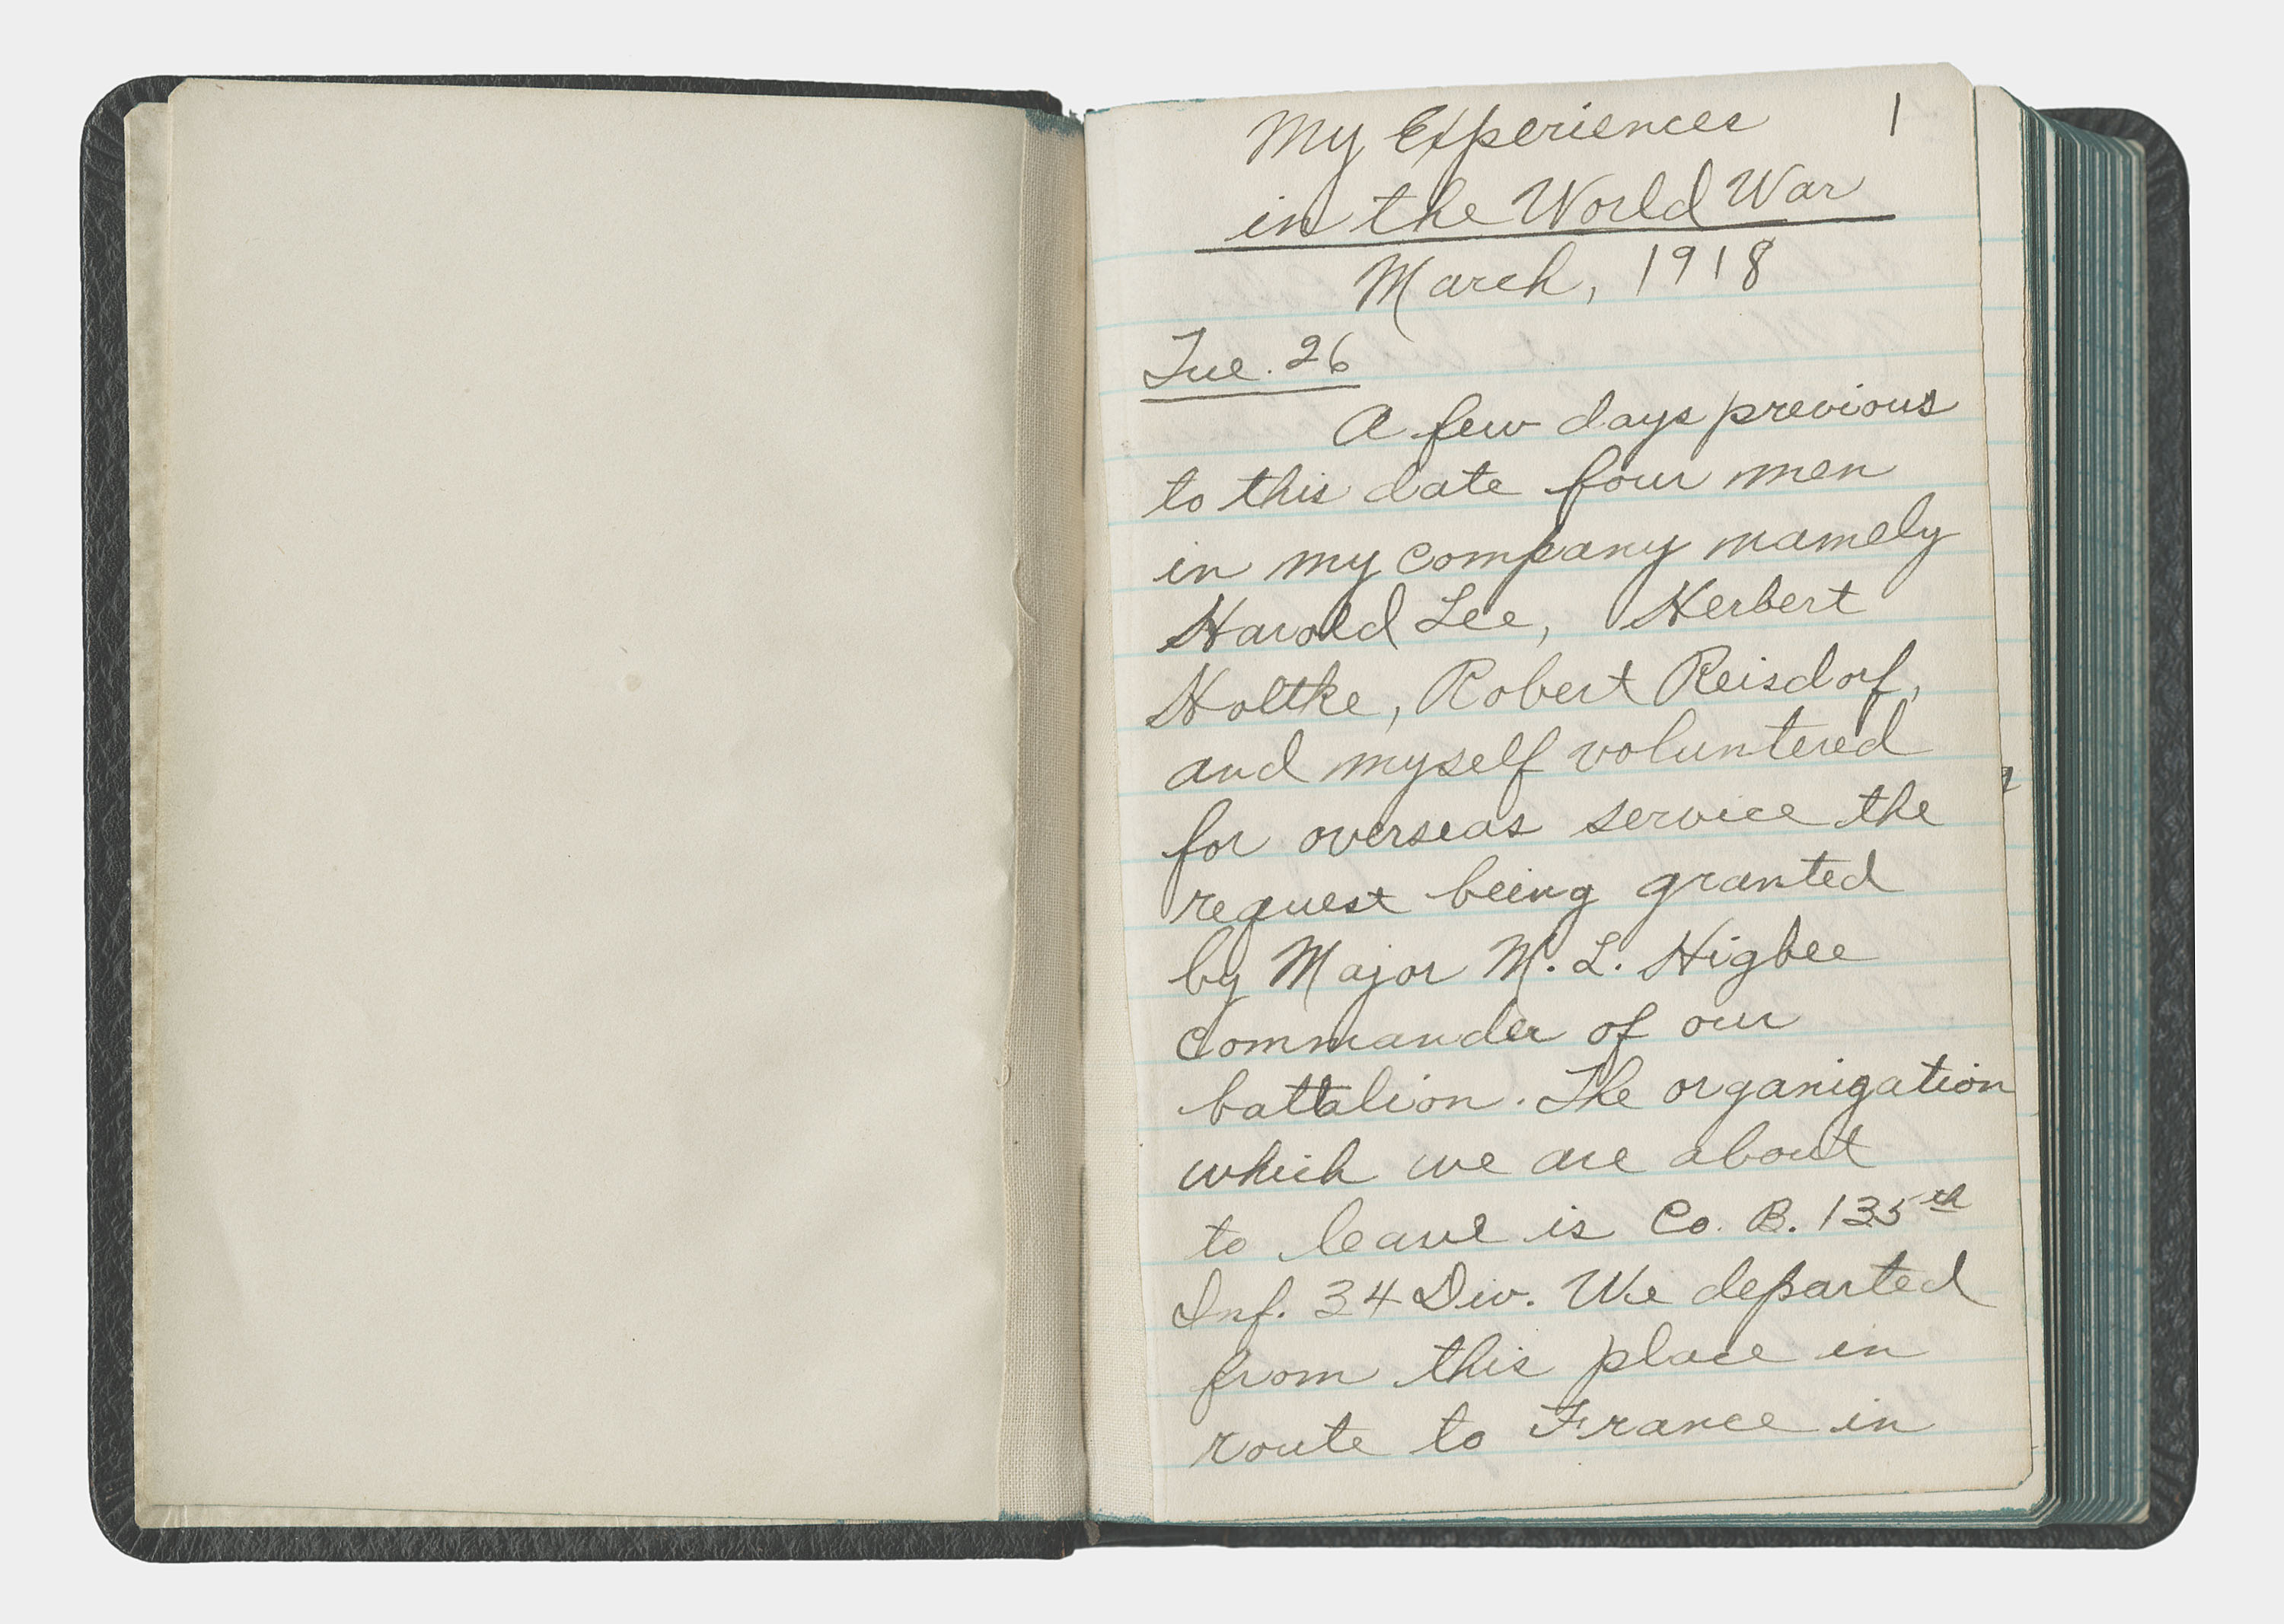 My Experiences 1
in the World War
March, 1918
Tue. 26
A few days previous
to this date four men
in my company namely
Harold Lee, Herbert
Holtke, Robert Reisdorf,
and myself voluntered
for overseas service the
request being granted
by Major M. L. Higbee
commander of our
battalion. The organization
which we are about
to leave is Co. B. 135th
Inf. 34 Div. We departed
from this place in
route to France in